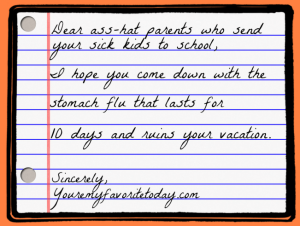 Dear ass-hat parents who send
your sick kids to school,
I hope you come down with the
stomach flu that lasts for
10 days and ruins your vacation.
Sincerely,
Youremyfavoritetoday.com